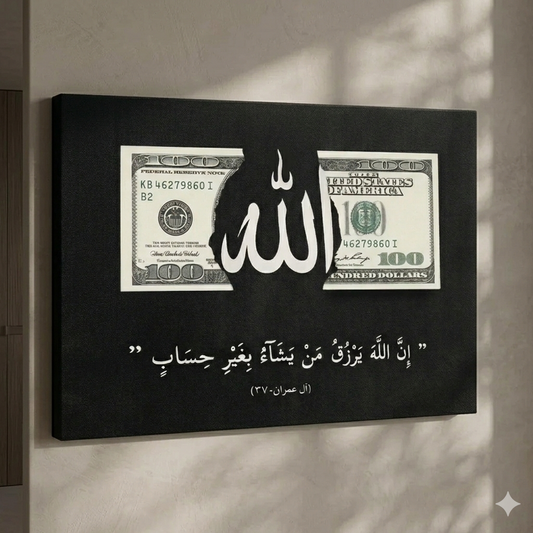 100 100
FEDERAL RESERVE NOTE
UNITED STATES
OF AMERICA
KB 46279860 I
B2
46279860 I
100 100
HUNDRED DOLLARS
الله
" إِنَّ اللَّهَ يَرْزُقُ مَنْ يَشَآءُ بِغَيْرِ حِسَابٍ "
(آل عمران-٣٧)